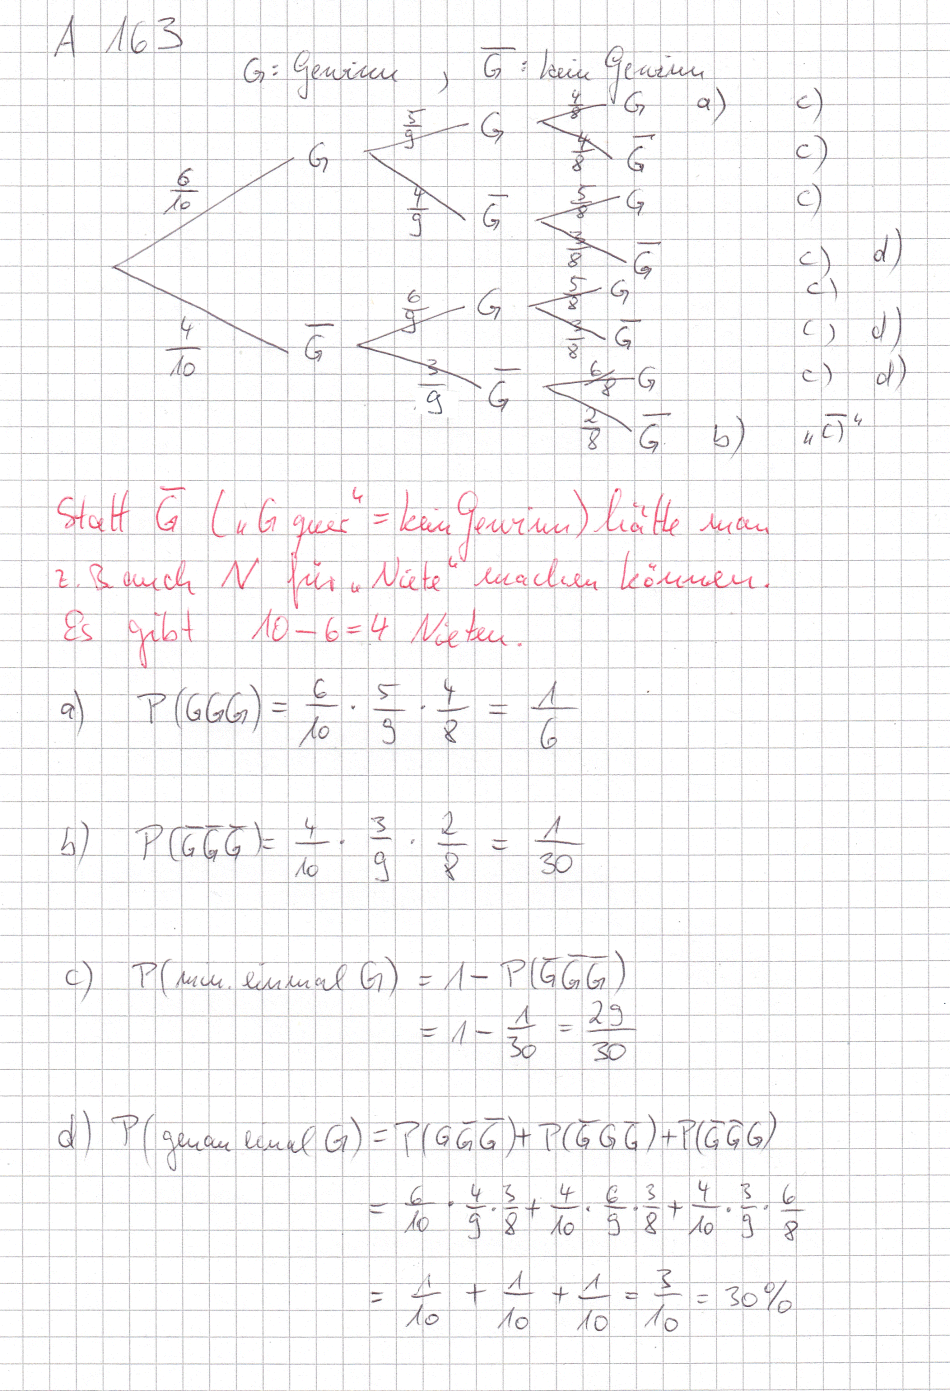 A 163
G = Gewinn , G̅ = kein Gewinn
6/10 G 5/9 G 4/8 G a) c)
4/8 G̅ c)
4/9 G̅ 5/8 G c)
3/8 G̅ c) d)
4/10 G̅ 6/9 G 5/8 G c)
3/8 G̅ c) d)
3/9 G̅ 6/8 G c) d)
2/8 G̅ b) „c̅)“
Statt G̅ („G quer“ = kein Gewinn) hätte man
z. B auch N für „Niete“ machen können.
Es gibt 10 – 6 = 4 Nieten.
a) P(GGG) = 6/10 · 5/9 · 4/8 = 1/6
b) P(G̅G̅G̅) = 4/10 · 3/9 · 2/8 = 1/30
c) P(min. einmal G) = 1 – P(G̅G̅G̅)
= 1 – 1/30 = 29/30
d) P(genau einmal G) = P(GG̅G̅) + P(G̅GG̅) + P(G̅G̅G)
= 6/10 · 4/9 · 3/8 + 4/10 · 6/9 · 3/8 + 4/10 · 3/9 · 6/8
= 1/10 + 1/10 + 1/10 = 3/10 = 30%